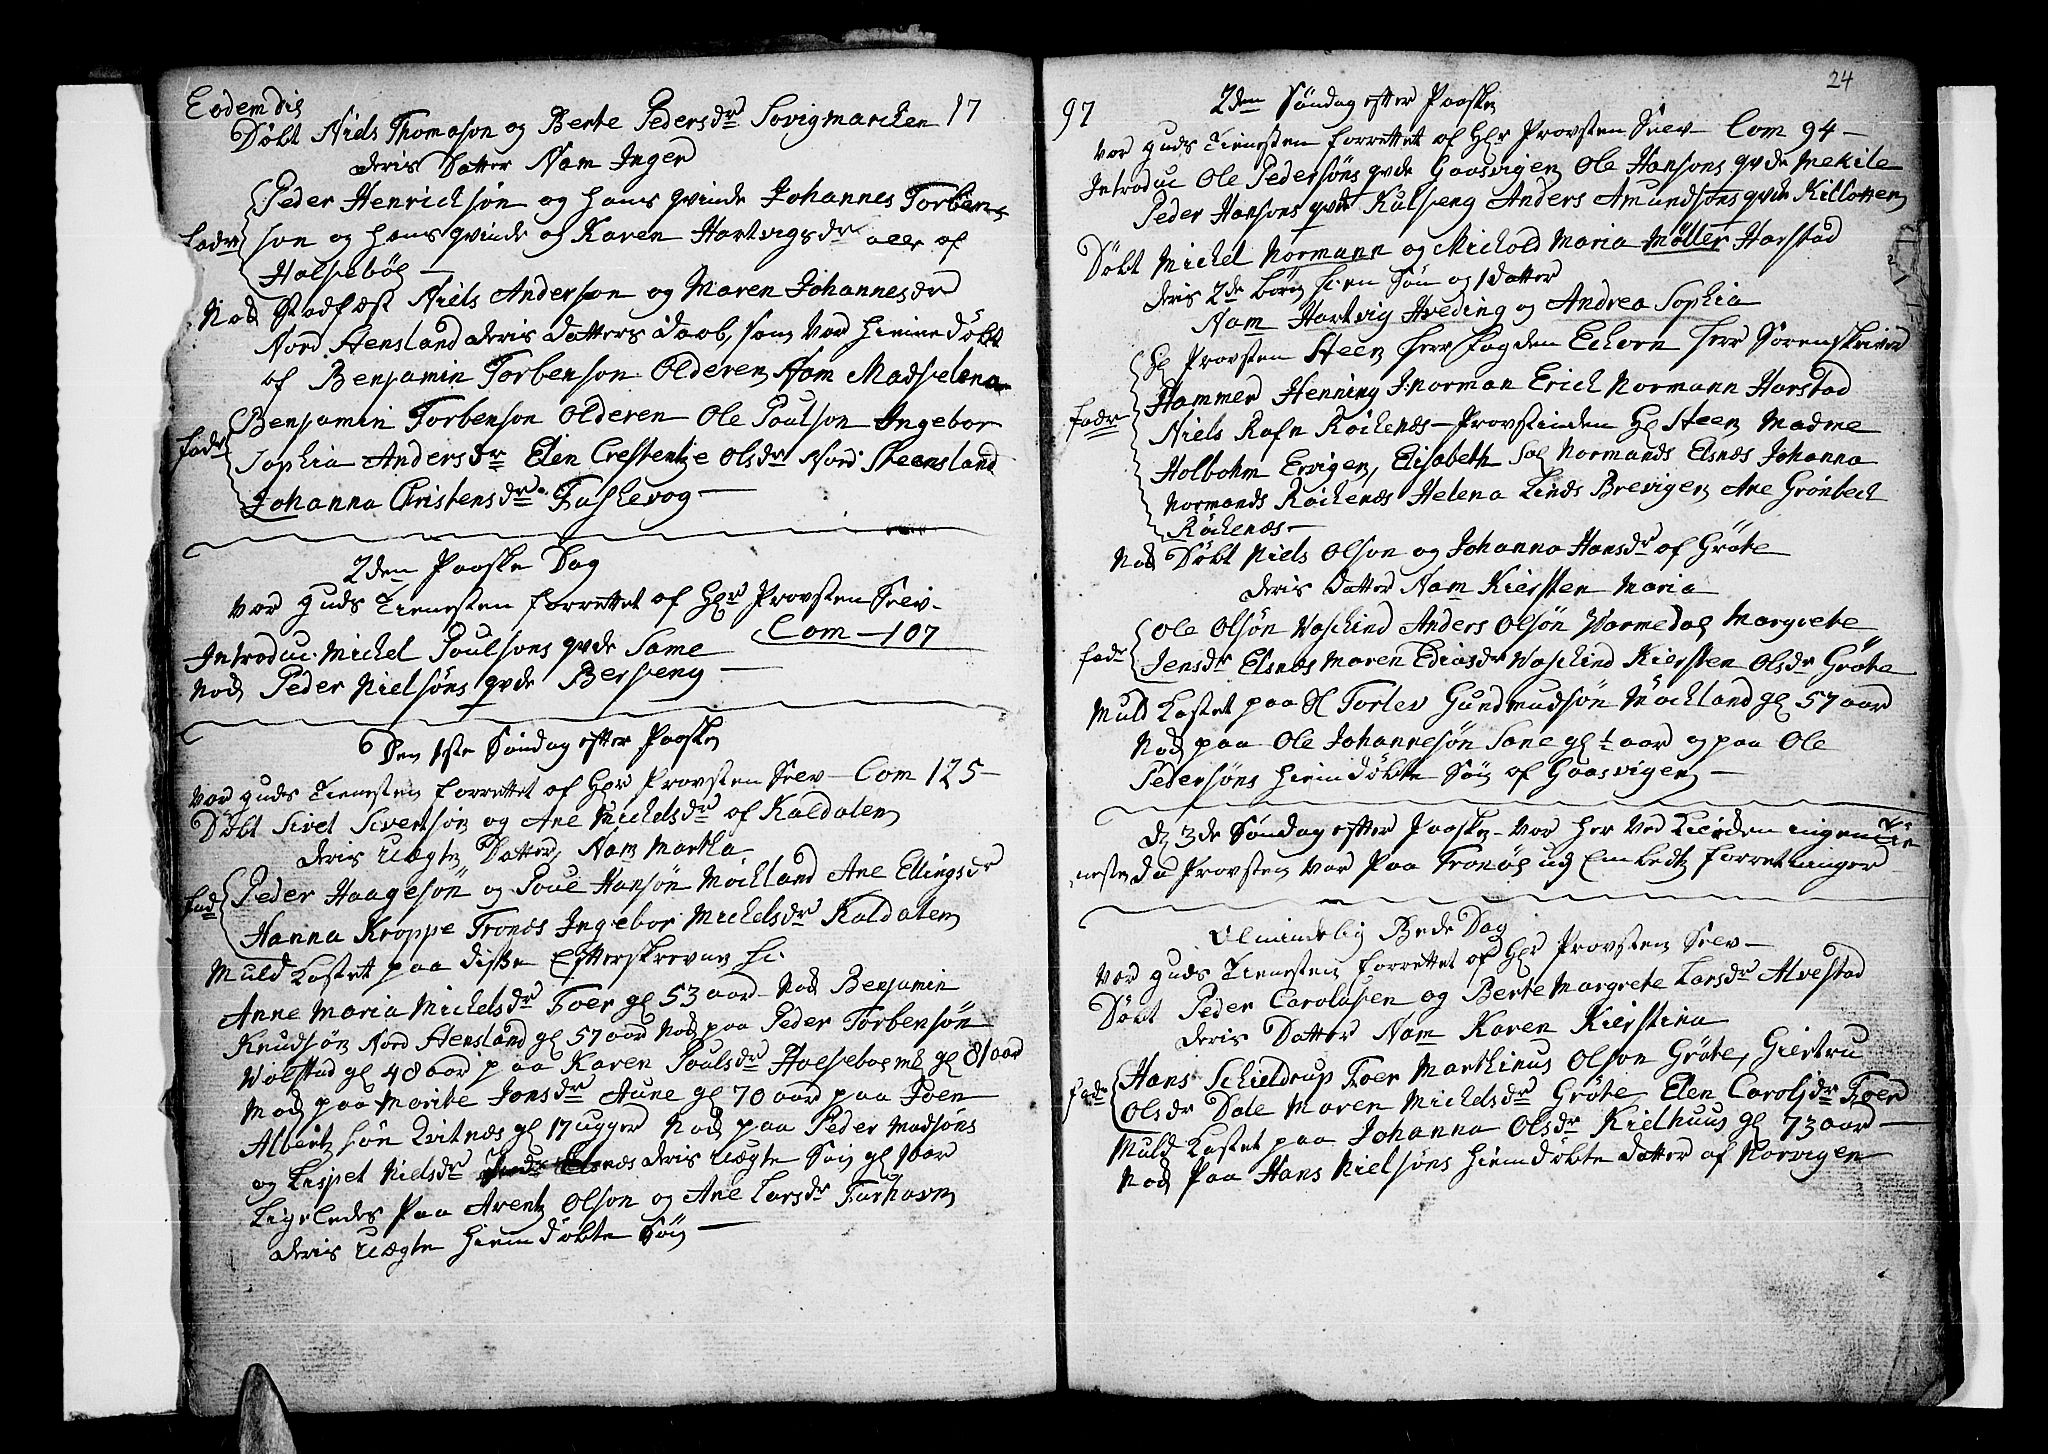 Eodem die
Døbt Niels Thomason og Berte Pedersdr Sovigmarchen 17
deris Datter Nam Inger
Peder Henrichsøn og hans qvinde Johannes Torben-
fadr son og hans qvinde og Karen Hartvigsdr alle af
Halsebøe
Nod Stadfæst Niels Anderson og Maren Johannesdr
Nord Stensland deris datters daab, som var hiemedøbt
af Benjamin Torbenson Olderen Nam Madselena
Benjamin Torbenson Olderen Ole Poulson Ingebor
fadr Sophia Andersdr Elen Crestentze Olsdr Nord Steensland
Johanna Christensdr Faskevog
2den Paaske Dag
var guds Tienesten forrettet af Hr Provsten Selv
Com 107
Introduc. Michel Poulsons qvde Same
Nod Peder Nielsøns qvde Berseng
Den 1ste Søndag efter Paaske
var guds Tienesten forrettet af Hr Provsten Selv Com 125
Døbt Sivet Sivertsøn og Ane Michelsdr af Kaldalen
deris uægte Datter, Nam Martha
fad Peder Haagesøn og Poul Hansøn Møckland Ane Ellingsdr
Hanna Kroppe Tronæs Ingebor Michelsdr Kaldalen
Muld kastet paa disse Efterskrevne
Anne Maria Michelsdr Foer gl 53 aar Nod Benjamin
Knudsøn Nord Stensland gl 57 aar Nod paa Peder Torbensøn
Volstad gl 48 aar paa Karen Poulsdr Halsebøe gl 81 aar
Nod paa Marite Jonsdr Aune gl 70 aar paa Joen
Albertsøn Qvitnæs gl 17 ugger Nod paa Peder Madsøns
og Lispet Nielsdr Elsnæs deris uægte Søn gl 1 aar
Ligeledes paa Arent Olson og Ane Larsdr Furhavn
deris uægte Hiemdøbte Søn
24
97
2den Søndag efter Paaske
var guds Tienesten forrettet af Hr Provsten Selv Com 94
Introduc Ole Pedersøns qvde Gaasvigen Ole Hansons qvde Mekile
Peder Hansons qvde Kulseng Anders Amundsøns qvde Killotten
Døbt Michel Normann og Michold Maria Møller Harstad
deris 2de børn en Søn og 1 datter
Nam Hartvig Hveding og Andrea Sophia
Hr Provsten Steen Herr fogden Echorn Herr Sorenskriver
fadr Hammer Henning J:norman Erich Normann Harstad
Niels Rafn Røckenæs Provstinden Hr Steen Madme
Holbohm Ervigen, Elisabeth Sal Normands Elsnæs Johanna
Normands Røckenæs Helena Linds Brevigen Ane Grønbech
Røckenæs
Nod Døbt Niels Olson og Johanna Hansdr af Grøte
deris datter Nam Kiersten Maria
Ole Olsøn Vaskind Anders Olsøn Varmedal Margrete
fadr Jensdr Elsnæs Maren Ediasdr Vaskind Kiersten Olsdr Grøte
Muld kastet paa Torlev Gundmudsøn Møckland gl 57 aar
Nod paa Ole Johannesøn Sane gl ½ aar og paa Ole
Pedersøns hiemdøbte Søn af Gaasvigen
3de Søndag efter Paaske var her ved Kierken ingen Tie
nesten da Provsten var paa Tronøe ud Embedtz forretninger
Almindelig Bede Dag
var guds Tienesten forrettet af Hr Provsten Selv
Døbt Peder Carolusen og Berte Margrete Larsdr Alvestad
deris Datter Nam Karen Kierstina
fadr Hans Schieldrup Foer Marthinus Olson Grøte, Giertru
Olsdr Dale Maren Michelsdr Grøte, Elen Carolsdr Foer
Muld kastet paa Johanna Olsdr Kielhuus gl 73 aar
Nod paa Hans Nielsøns hiemdøbte datter af Norvigen